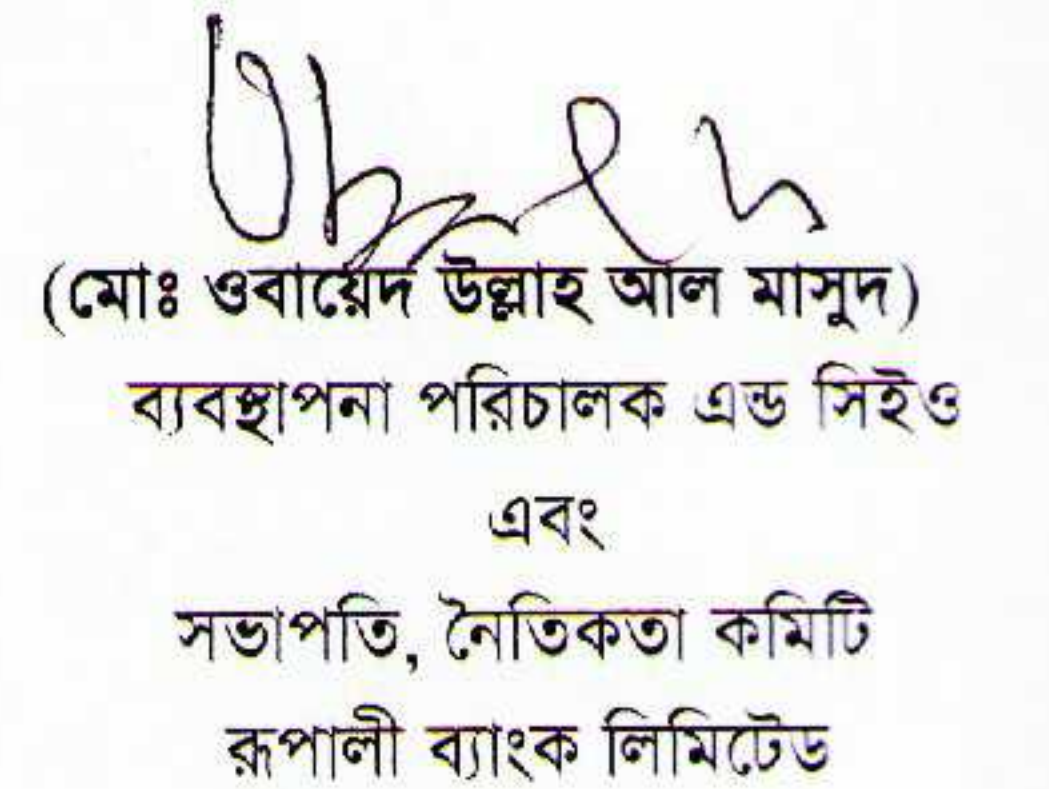 (মোঃ ওবায়েদ উল্লাহ আল মাসুদ)
ব্যবস্থাপনা পরিচালক এন্ড সিইও
এবং
সভাপতি, নৈতিকতা কমিটি
রূপালী ব্যাংক লিমিটেড